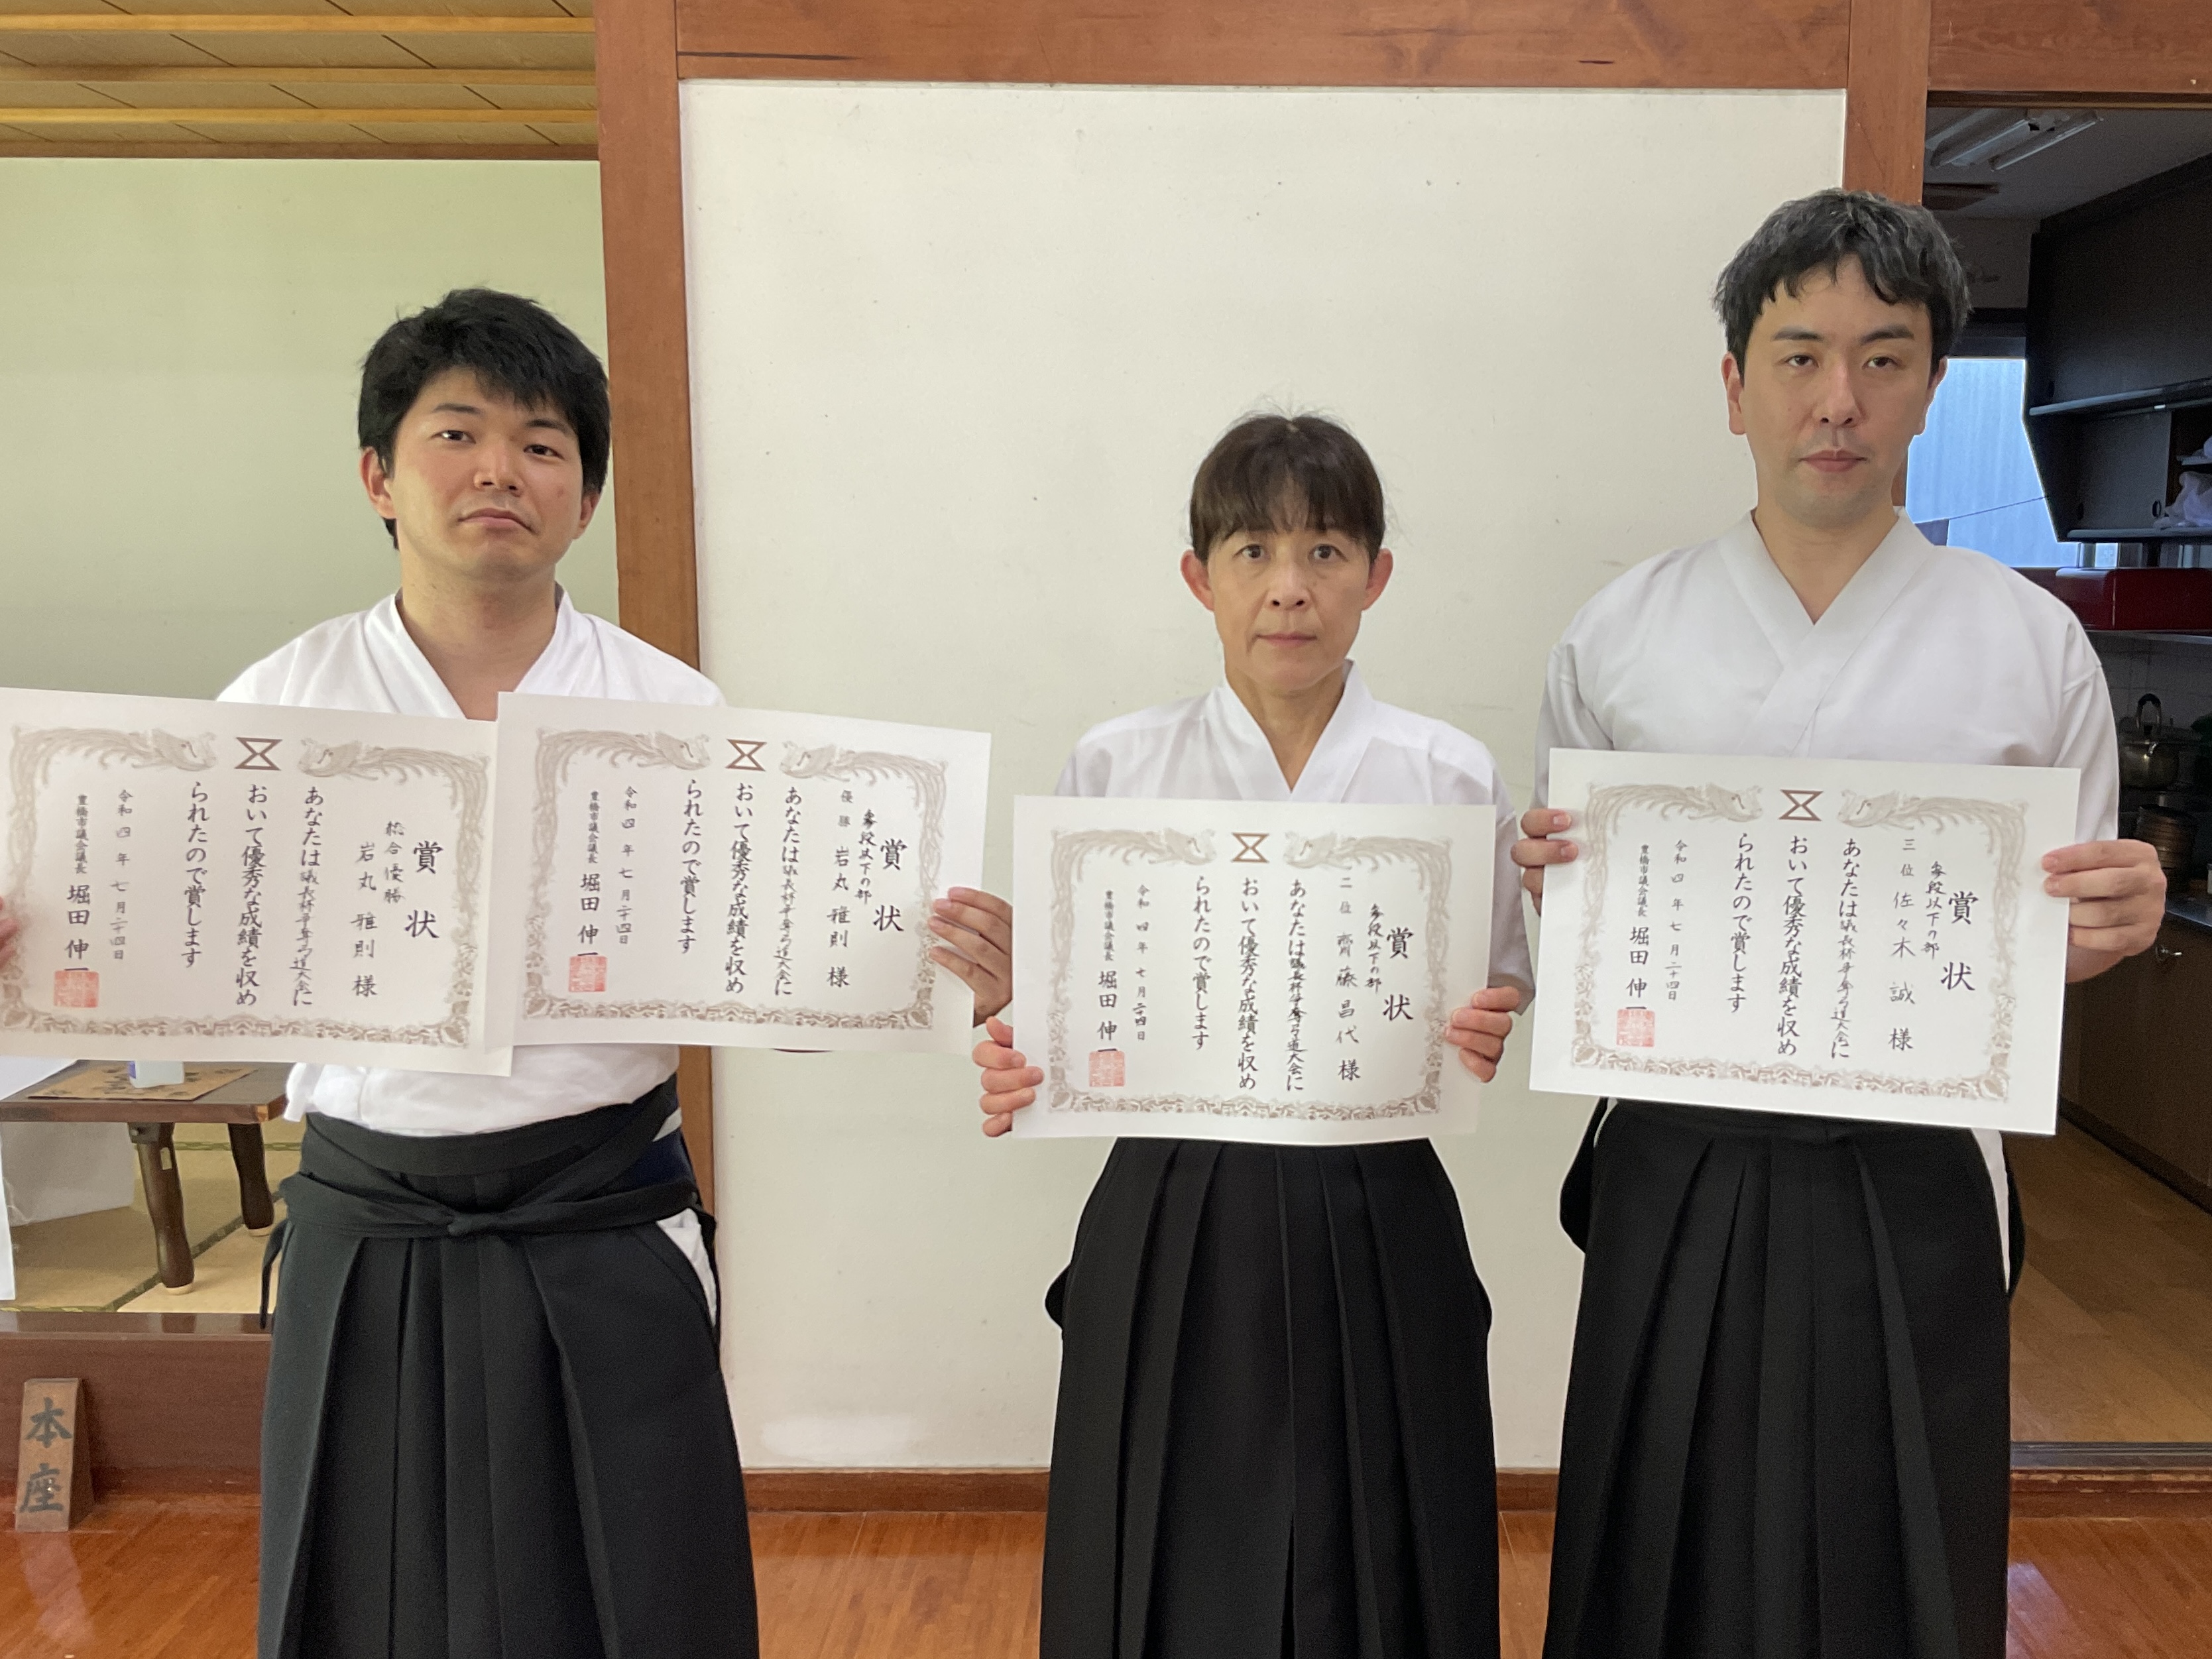 賞状
総合優勝
岩丸 雅則 様
あなたは議長杯争奪弓道大会に
おいて優秀な成績を収め
られたので賞します
令和四年七月二十四日
豊橋市議会議長 堀田 伸一
賞状
参段以下の部
優勝 岩丸 雅則 様
あなたは議長杯争奪弓道大会に
おいて優秀な成績を収め
られたので賞します
令和四年七月二十四日
豊橋市議会議長 堀田 伸一
賞状
参段以下の部
二位 齋藤 昌代 様
あなたは議長杯争奪弓道大会に
おいて優秀な成績を収め
られたので賞します
令和四年七月二十四日
豊橋市議会議長 堀田 伸一
賞状
参段以下の部
三位 佐々木 誠 様
あなたは議長杯争奪弓道大会に
おいて優秀な成績を収め
られたので賞します
令和四年七月二十四日
豊橋市議会議長 堀田 伸一
本座